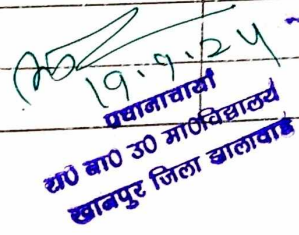 19.9.24
प्रधानाचार्या
रा0 बा0 उ0 मा0विद्यालय
खानपुर जिला झालावाड